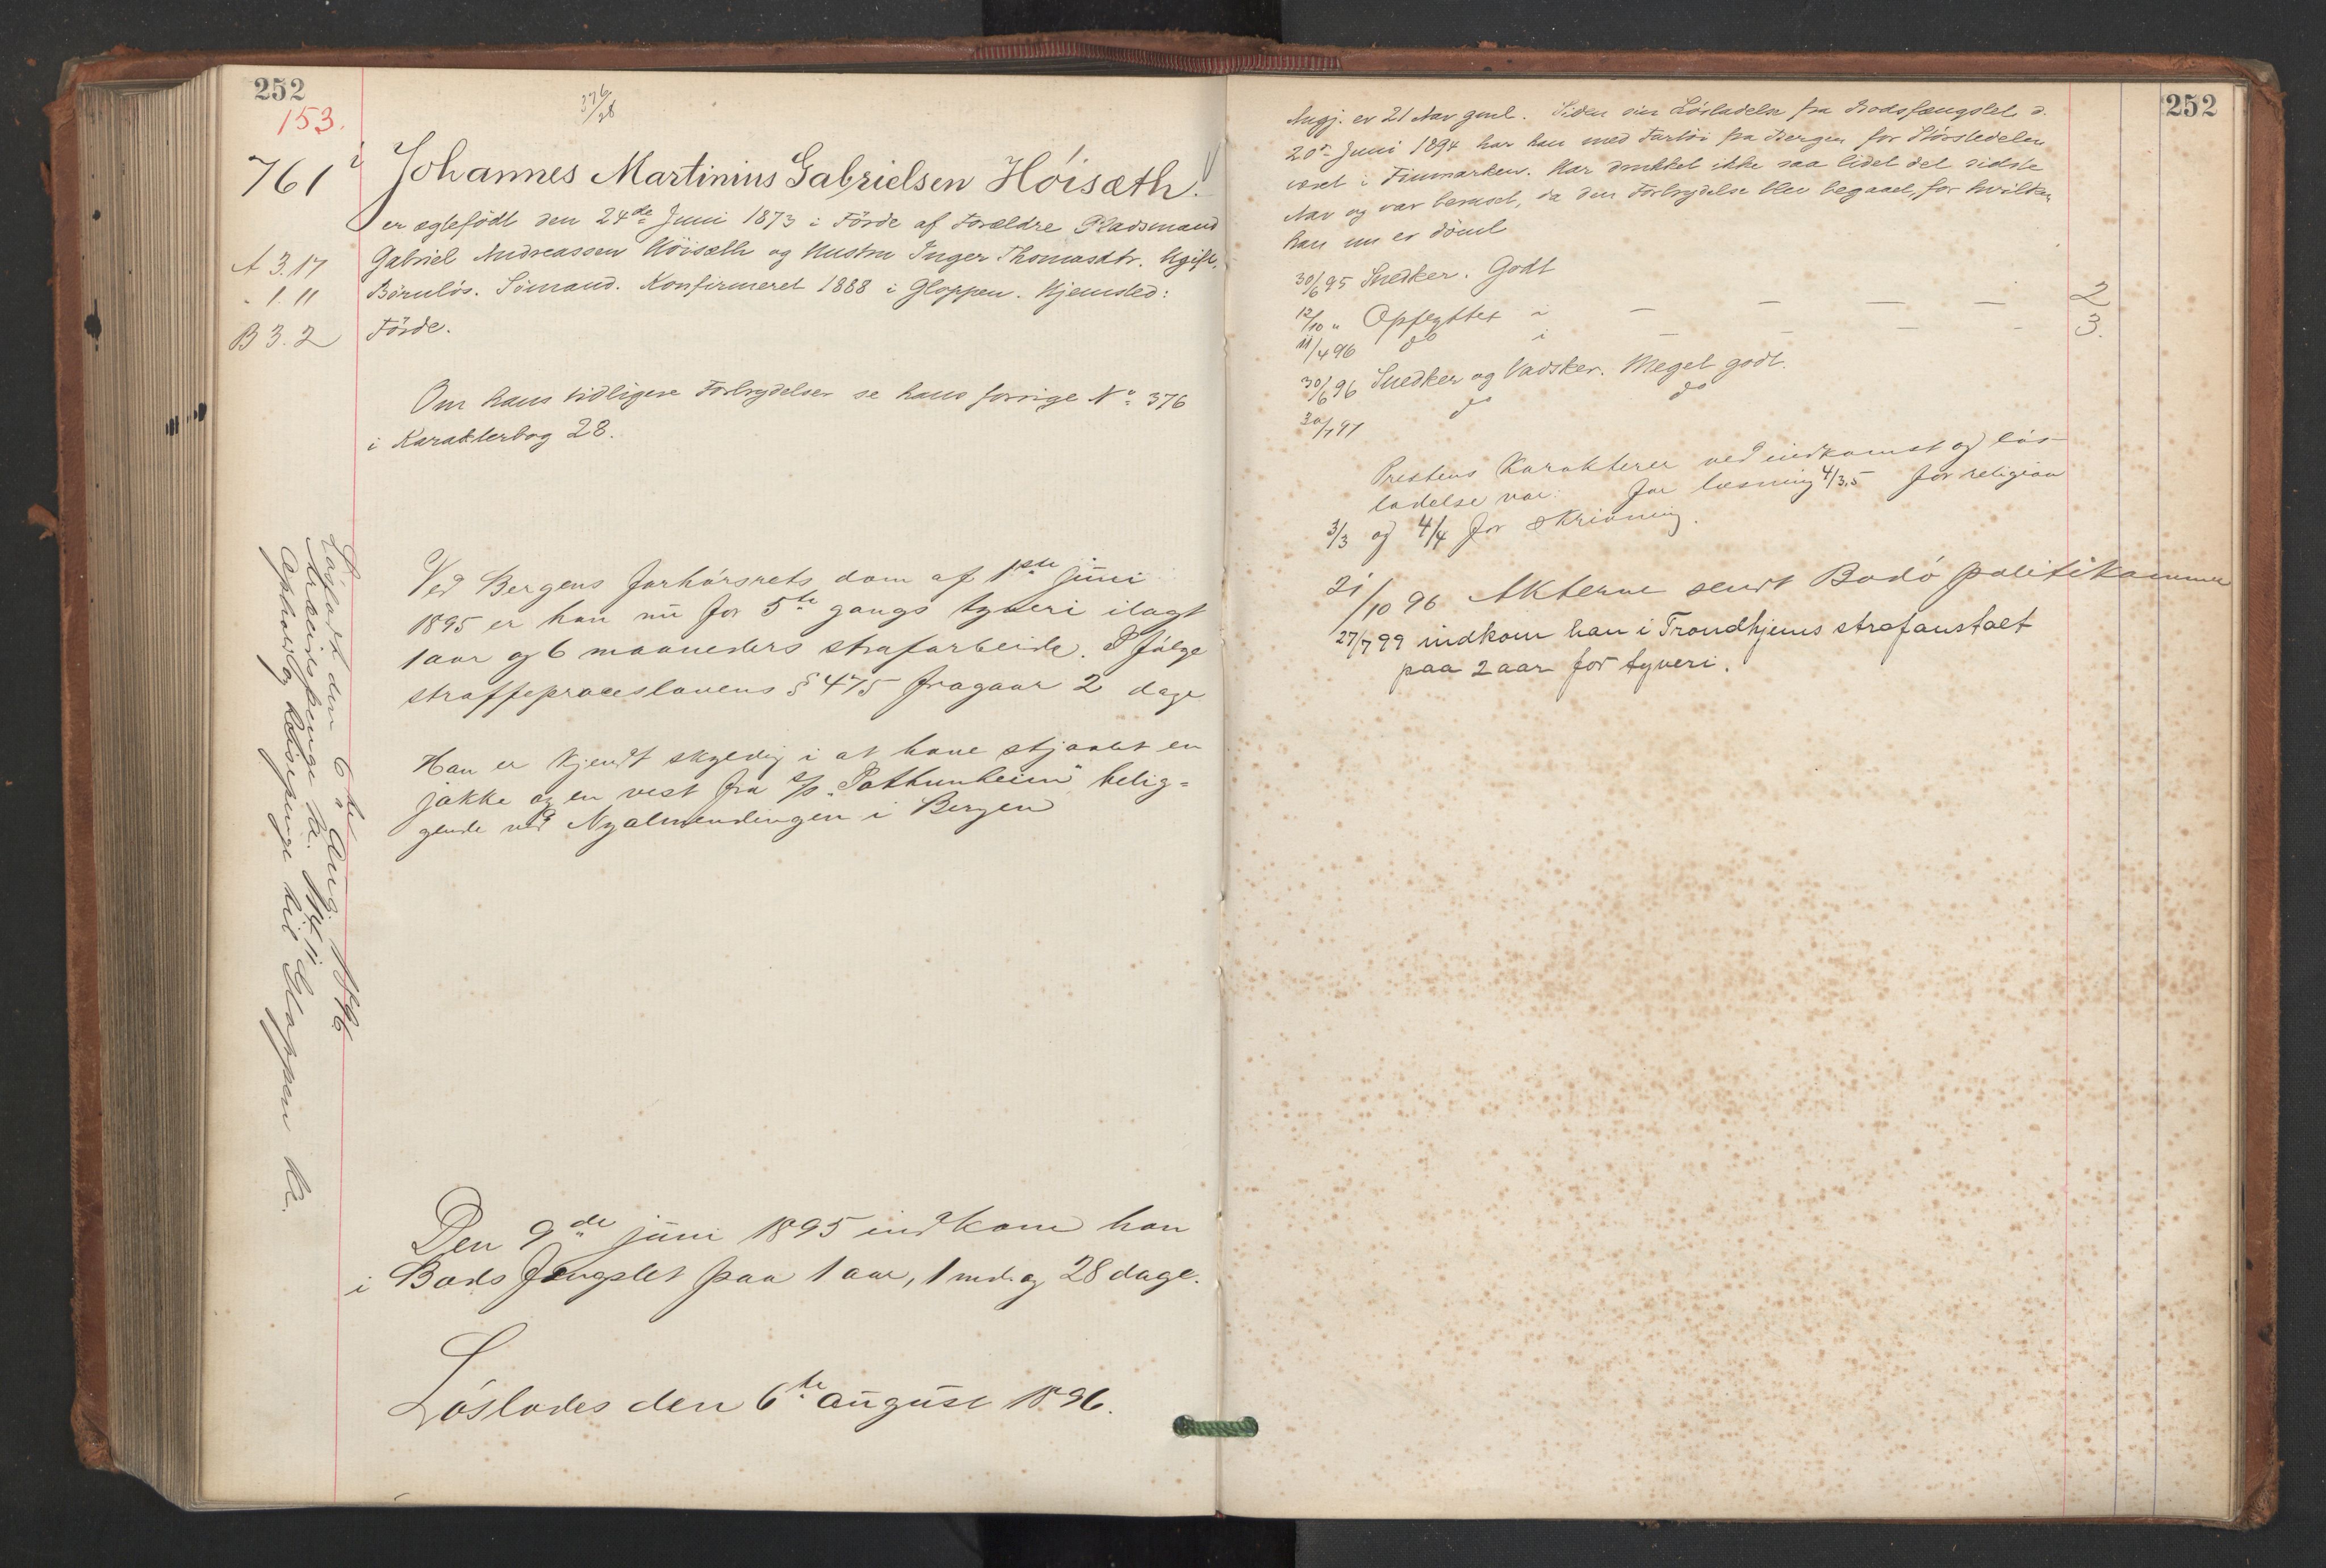 252
153.
376/28
761
Johannes Martinius Gabrielsen Höisæth.
er ægtefødt den 24de Juni 1873 i Förde af Forældre Pladsmand
A 3.17
Gabriel Andreassen Höisæth og Hustru Inger Thomasdtr. Ugift,
- 1.11
Börnlös. Sömand. Konfirmeret 1888 i Gloppen. Hjemsted:
B 3.2
Förde.
Om hans tidligere Forbrydelser se hans forrige No 376
i Karakterbog 28.
Ved Bergens forhörsrets dom af 1ste juni
1895 er han nu for 5te gangs tyveri ilagt
1 aar og 6 maaneders strafarbeide. I fölge
straffeproceslovens § 475 fragaar 2 dage
Han er kjendt skyldig i at have stjaalet en
jakke og en vest fra s/s „ belig=
gende ved Nyalmendingen i Bergen
Den 9de juni 1895 indkom han
i Bodsfengslet paa 1 aar, 1 md. og 28 dage.
Löslades den 6te august 1896.
Lösladt den 6te Aug. 1896
Arbeidspenge kr.
Ophold og Reisepenge til Gloppen kr.
252
Angj. er 21 Aar gml. Siden sin Lösladelse fra Bodsfængslet d.
20de Juni 1894 har han med Fartöi fra Bergen for Störstedelen
været i Finmarken. Har drukket ikke saa lidet det sidste
Aar og var beruset, da den Forbrydelse blev begaaet, for hvilken
han nu er dömt
30/6 95 Snedker. Godt
12/10 " Opflyttet i — — — — 2
11/4 96 do i — — — - 3.
30/6 96 Snedker og Vadsker. Meget godt.
do do
Prestens Karakterer ved indkomst og lös-
ladelse var: for læsning 4/3,5 for religion
3/3 og 4/4 for skrivning.
21/10 96 Akterne sendt Bodö politikammer
27/7 99 indkom han i Trondhjems strafanstalt
paa 2 aar for tyveri.